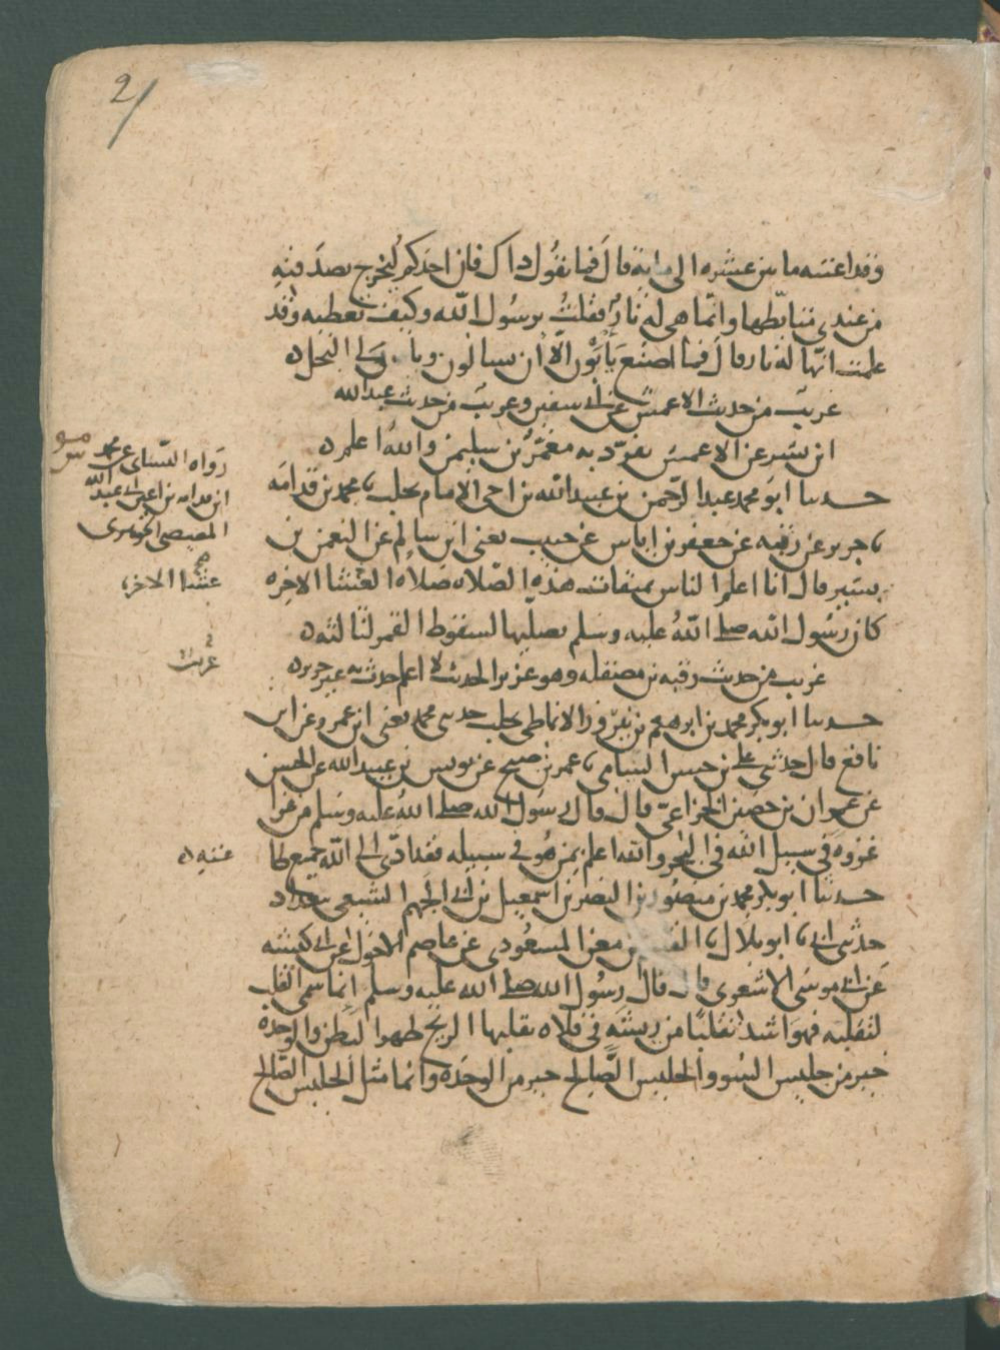 2/
وقد اعتسه ما بين عشره الى مايه قال فما تقول ذاك فان احدكم ليخرج بصدقته
من عندي متابطها وانما هي له نار فقلت يرسول الله وكيف تعطيه وقد
علمت انها له نار قال فما اصنع يأبون الا ان يسالون ويا لي البخل ه
غريب من حديث الاعمش عن ابي سفين وغريب من حديث عبد الله
ابن بشر عن الاعمش تفرد به معمر بن سليمن والله اعلم ه
حدثنا ابو محمد عبد الرحمن بن عبيد الله بن اخي الامام بحلب ثنا محمد بن قدامه
ثنا جرير عن رقبه عن جعفر بن اياس عن حبيب يعني ابن سالم عن النعمن بن
بشير قال انا اعلم الناس بميقات هذه الصلاه صلاه العشا الاخره
كان رسول الله صلى الله عليه وسلم يصليها لسقوط القمر لثالثه ه
غريب من حديث رقبه بن مصقله وهو عزيز الحديث لا اعلم حدث به غير جرير ه
حدثنا ابو بكر محمد بن ابرهيم بن نيروز الانماطي بحلب حدثني محمد يعني ابن عمرو عن ابن
نافع قال حدثني علي بن الشامي ثنا عمر بن صبح عن يونس بن عبيد الله عن الحسن
عن عمران بن حصين الخزاعي قال قال رسول الله صلى الله عليه وسلم من غزا
غزوه في سبيل الله في البحر والله اعلم بمن هو في سبيله فقد ادى الى الله جميع طا
حدثنا ابو بكر محمد بن منصور بن النضر بن اسمعيل بن ابي الجهم الشيعي ببغداد
حدثني ابي ثنا ابو بلال ثنا معن المسعودي عن عاصم الاحول عن ابي كبشه
عن ابي موسى الاشعري قال قال رسول الله صلى الله عليه وسلم انما سمي القلب
لتقلبه فهو اشد تقلبا من ريشه في فلاه تقلبها الريح ظهرا لبطن والوحده
خير من جليس السوء والجليس الصالح خير من الوحده وانما مثل الجليس الصالح
رواه النساي عن محمد
ابن قدامه بن اعين ابي عبد الله
المصيصي الجوهري
عشا الاخره
غريب